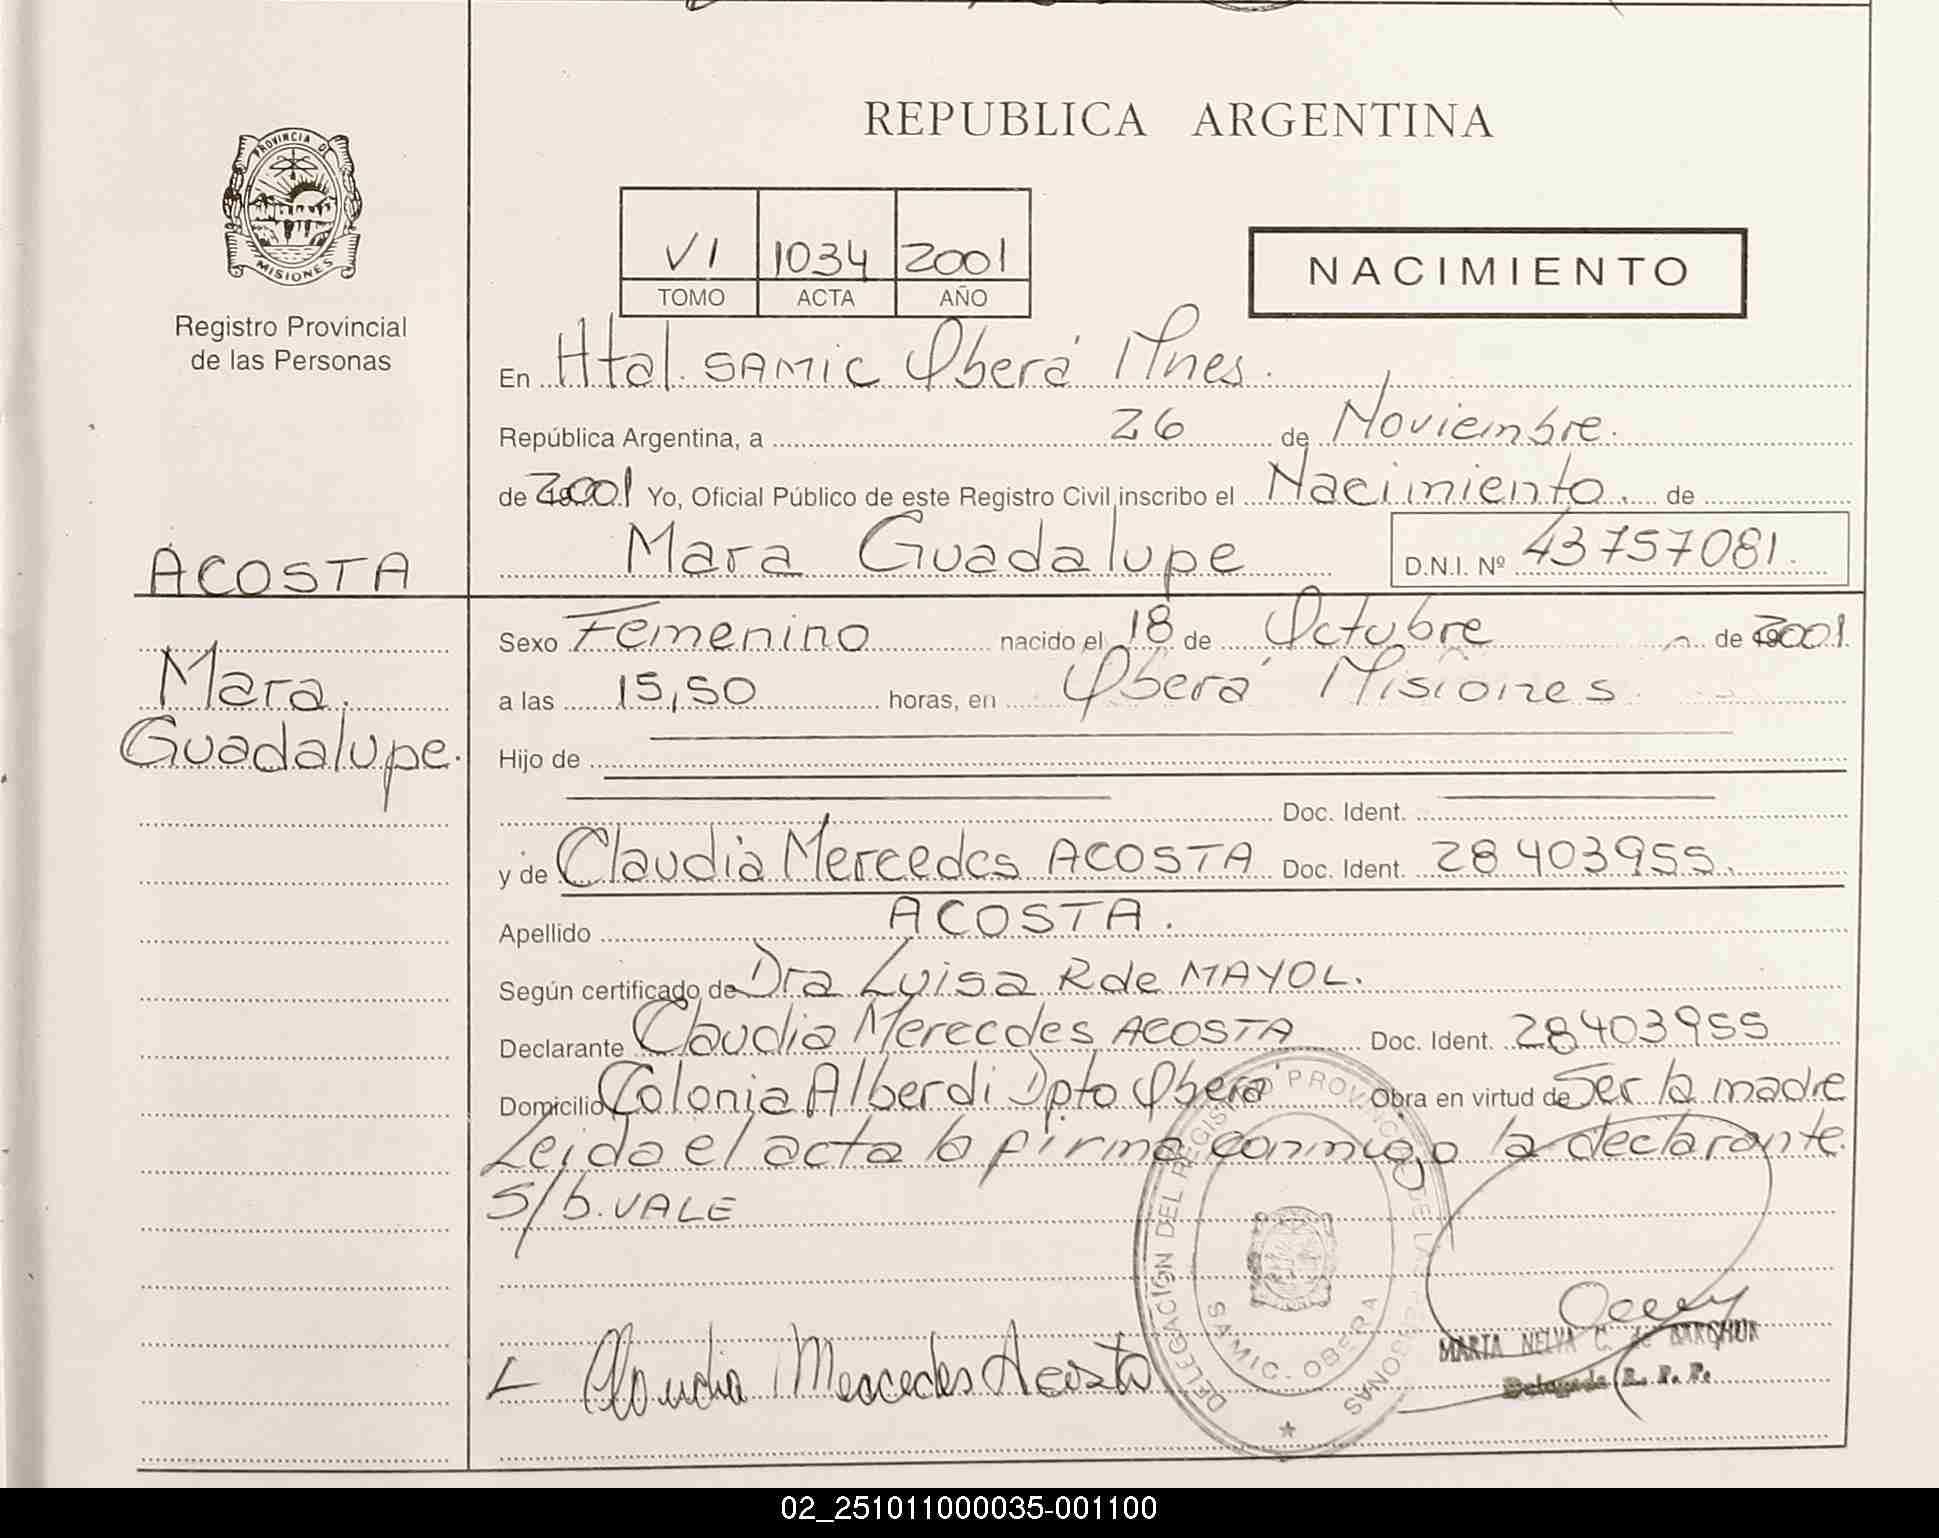 REPUBLICA ARGENTINA
PROVINCIA DE
MISIONES
Registro Provincial
de las Personas
VI 1034 2001
TOMO ACTA AÑO
NACIMIENTO
En Htal. SAMIC Oberá Mnes.
República Argentina, a 26 de Noviembre.
de 2001 Yo, Oficial Público de este Registro Civil inscribo el Nacimiento. de
Mara Guadalupe D.N.I. Nº 43757081.
ACOSTA
Mara.
Guadalupe.
Sexo Femenino nacido el 18 de Octubre de 2001.
a las 15,50 horas, en Oberá Misiones
Hijo de
Doc. Ident.
y de Claudia Mercedes ACOSTA Doc. Ident. 28403955.
Apellido ACOSTA.
Según certificado de Dra Luisa R de MAYOL.
Declarante Claudia Merecdes ACOSTA Doc. Ident. 28403955
Domicilio Colonia Alberdi Dpto Oberá Obra en virtud de Ser la madre
Leida el acta la firma conmigo la declarante.
S/b. VALE
DELEGACIÓN DEL REGISTRO PROVINCIAL DE LAS PERSONAS
SAMIC. OBERA
Claudia Mercedes Acosta
MARIA NELVA C. de BARCHUK
Delegada R. P. P.
02_251011000035-001100